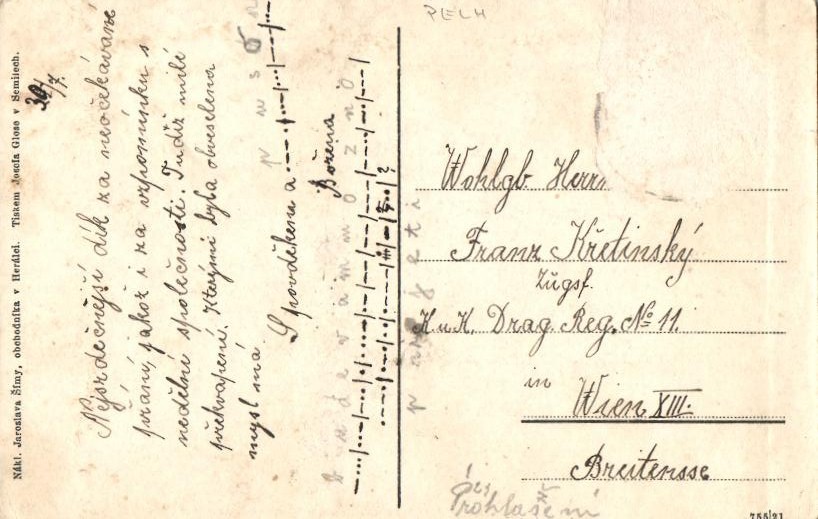 PELH
Nákl. Jaroslava Šímy, obchodníka v Herálci. Tiskem Josefa Glose v Semilech.
30/7.
Nejsrdečnější dík za neočekávané
přání, jakož i za vzpomínku s
nedělní společnosti. Tudíž milé
překvapení. Kterými byla obveselena
mysl má
S poděkem a
Božena
Wohlgb. Herrn
Franz Křetinský
Zugsf.
K u K. Drag. Reg. № 11.
in
Wien XIII.
Breitensse
Prohlašení
755/21